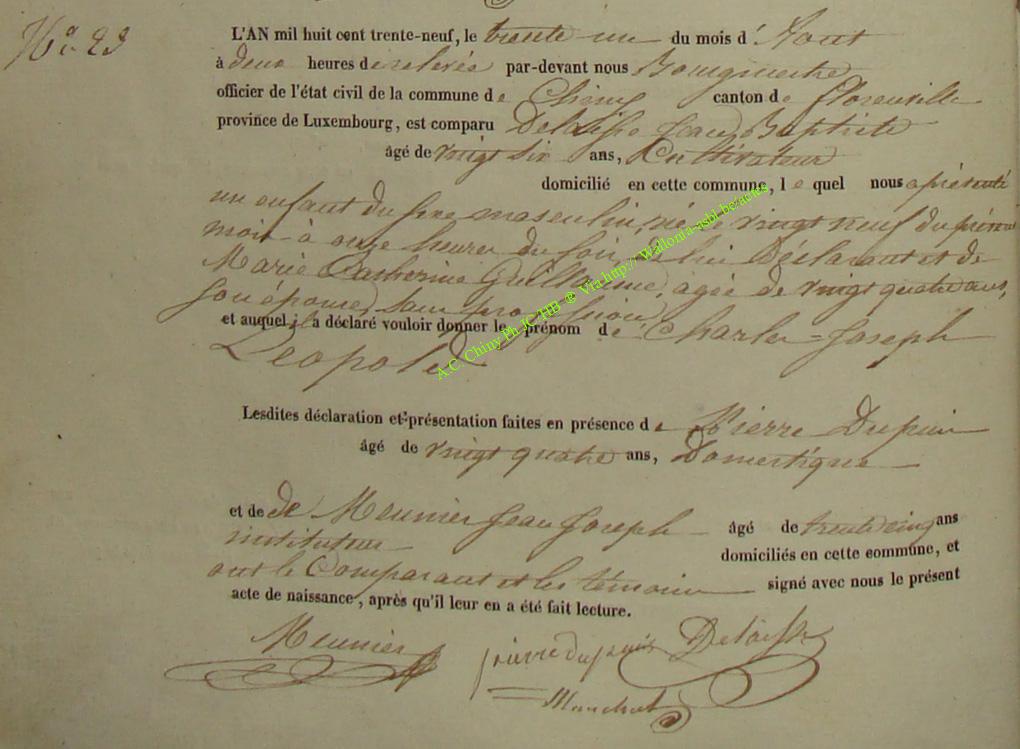 N° 23
L'AN mil huit cent trente-neuf, le trente un du mois d'Aout
à deux heures de relevée par-devant nous Bourgmestre
officier de l'état civil de la commune de Chiny canton de florenville
province de Luxembourg, est comparu Delaisse Jean Baptiste
âgé de vingt six ans, Cultivateur
domicilié en cette commune, le quel nous a présenté
un enfant du sexe masculin, né le vingt neuf du présent
mois à onze heures du soir, de lui Déclarant et de
Marie Catherine Guillaume, agée de vingt quatre ans,
son épouse, sans profession
et auquel il a déclaré vouloir donner le prénom de Charles=Joseph
Leopold
A.C. Chiny Ph JC THB ® Via http:// Wallonia-asbl.be/actes
Lesdites déclaration et présentation faites en présence de Pierre Dupuis
âgé de vingt quatre ans, Domestique
et de de Meunier Jean Joseph âgé de trente cinq ans
instituteur domiciliés en cette commune, et
ont le Comparant et les témoins signé avec nous le présent
acte de naissance, après qu'il leur en a été fait lecture.
Meunier pierre dupuis Delaisse